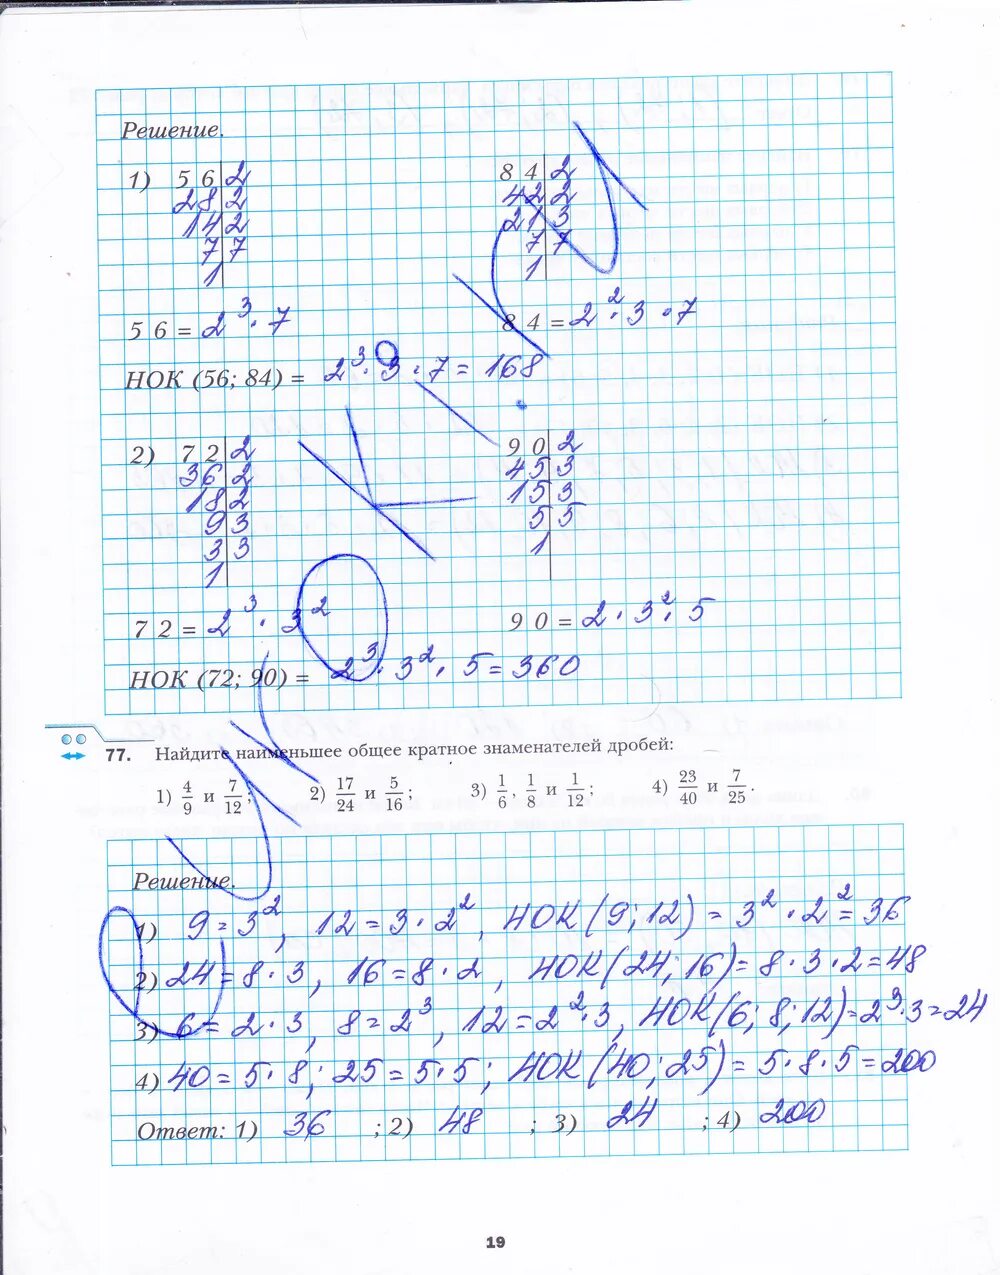 Решение.
1) 56|2 84|2
28|2 42|2
14|2 21|3
7|7 7|7
1| 1|
56 = 2³ · 7 84 = 2² · 3 · 7
НОК (56; 84) = 2³ · 3 · 7 = 168
2) 72|2 90|2
36|2 45|3
18|2 15|3
9|3 5|5
3|3 1|
1|
72 = 2³ · 3² 90 = 2 · 3² · 5
НОК (72; 90) = 2³ · 3² · 5 = 360
77. Найдите наименьшее общее кратное знаменателей дробей:
1) 4/9 и 7/12; 2) 17/24 и 5/16; 3) 1/6, 1/8 и 1/12; 4) 23/40 и 7/25.
Решение.
1) 9 = 3², 12 = 3 · 2², НОК (9; 12) = 3² · 2² = 36
2) 24 = 8 · 3, 16 = 8 · 2, НОК (24; 16) = 8 · 3 · 2 = 48
3) 6 = 2 · 3, 8 = 2³, 12 = 2² · 3, НОК (6; 8; 12) = 2³ · 3 = 24
4) 40 = 5 · 8; 25 = 5 · 5; НОК (40; 25) = 5 · 8 · 5 = 200
Ответ: 1) 36 ; 2) 48 ; 3) 24 ; 4) 200
19